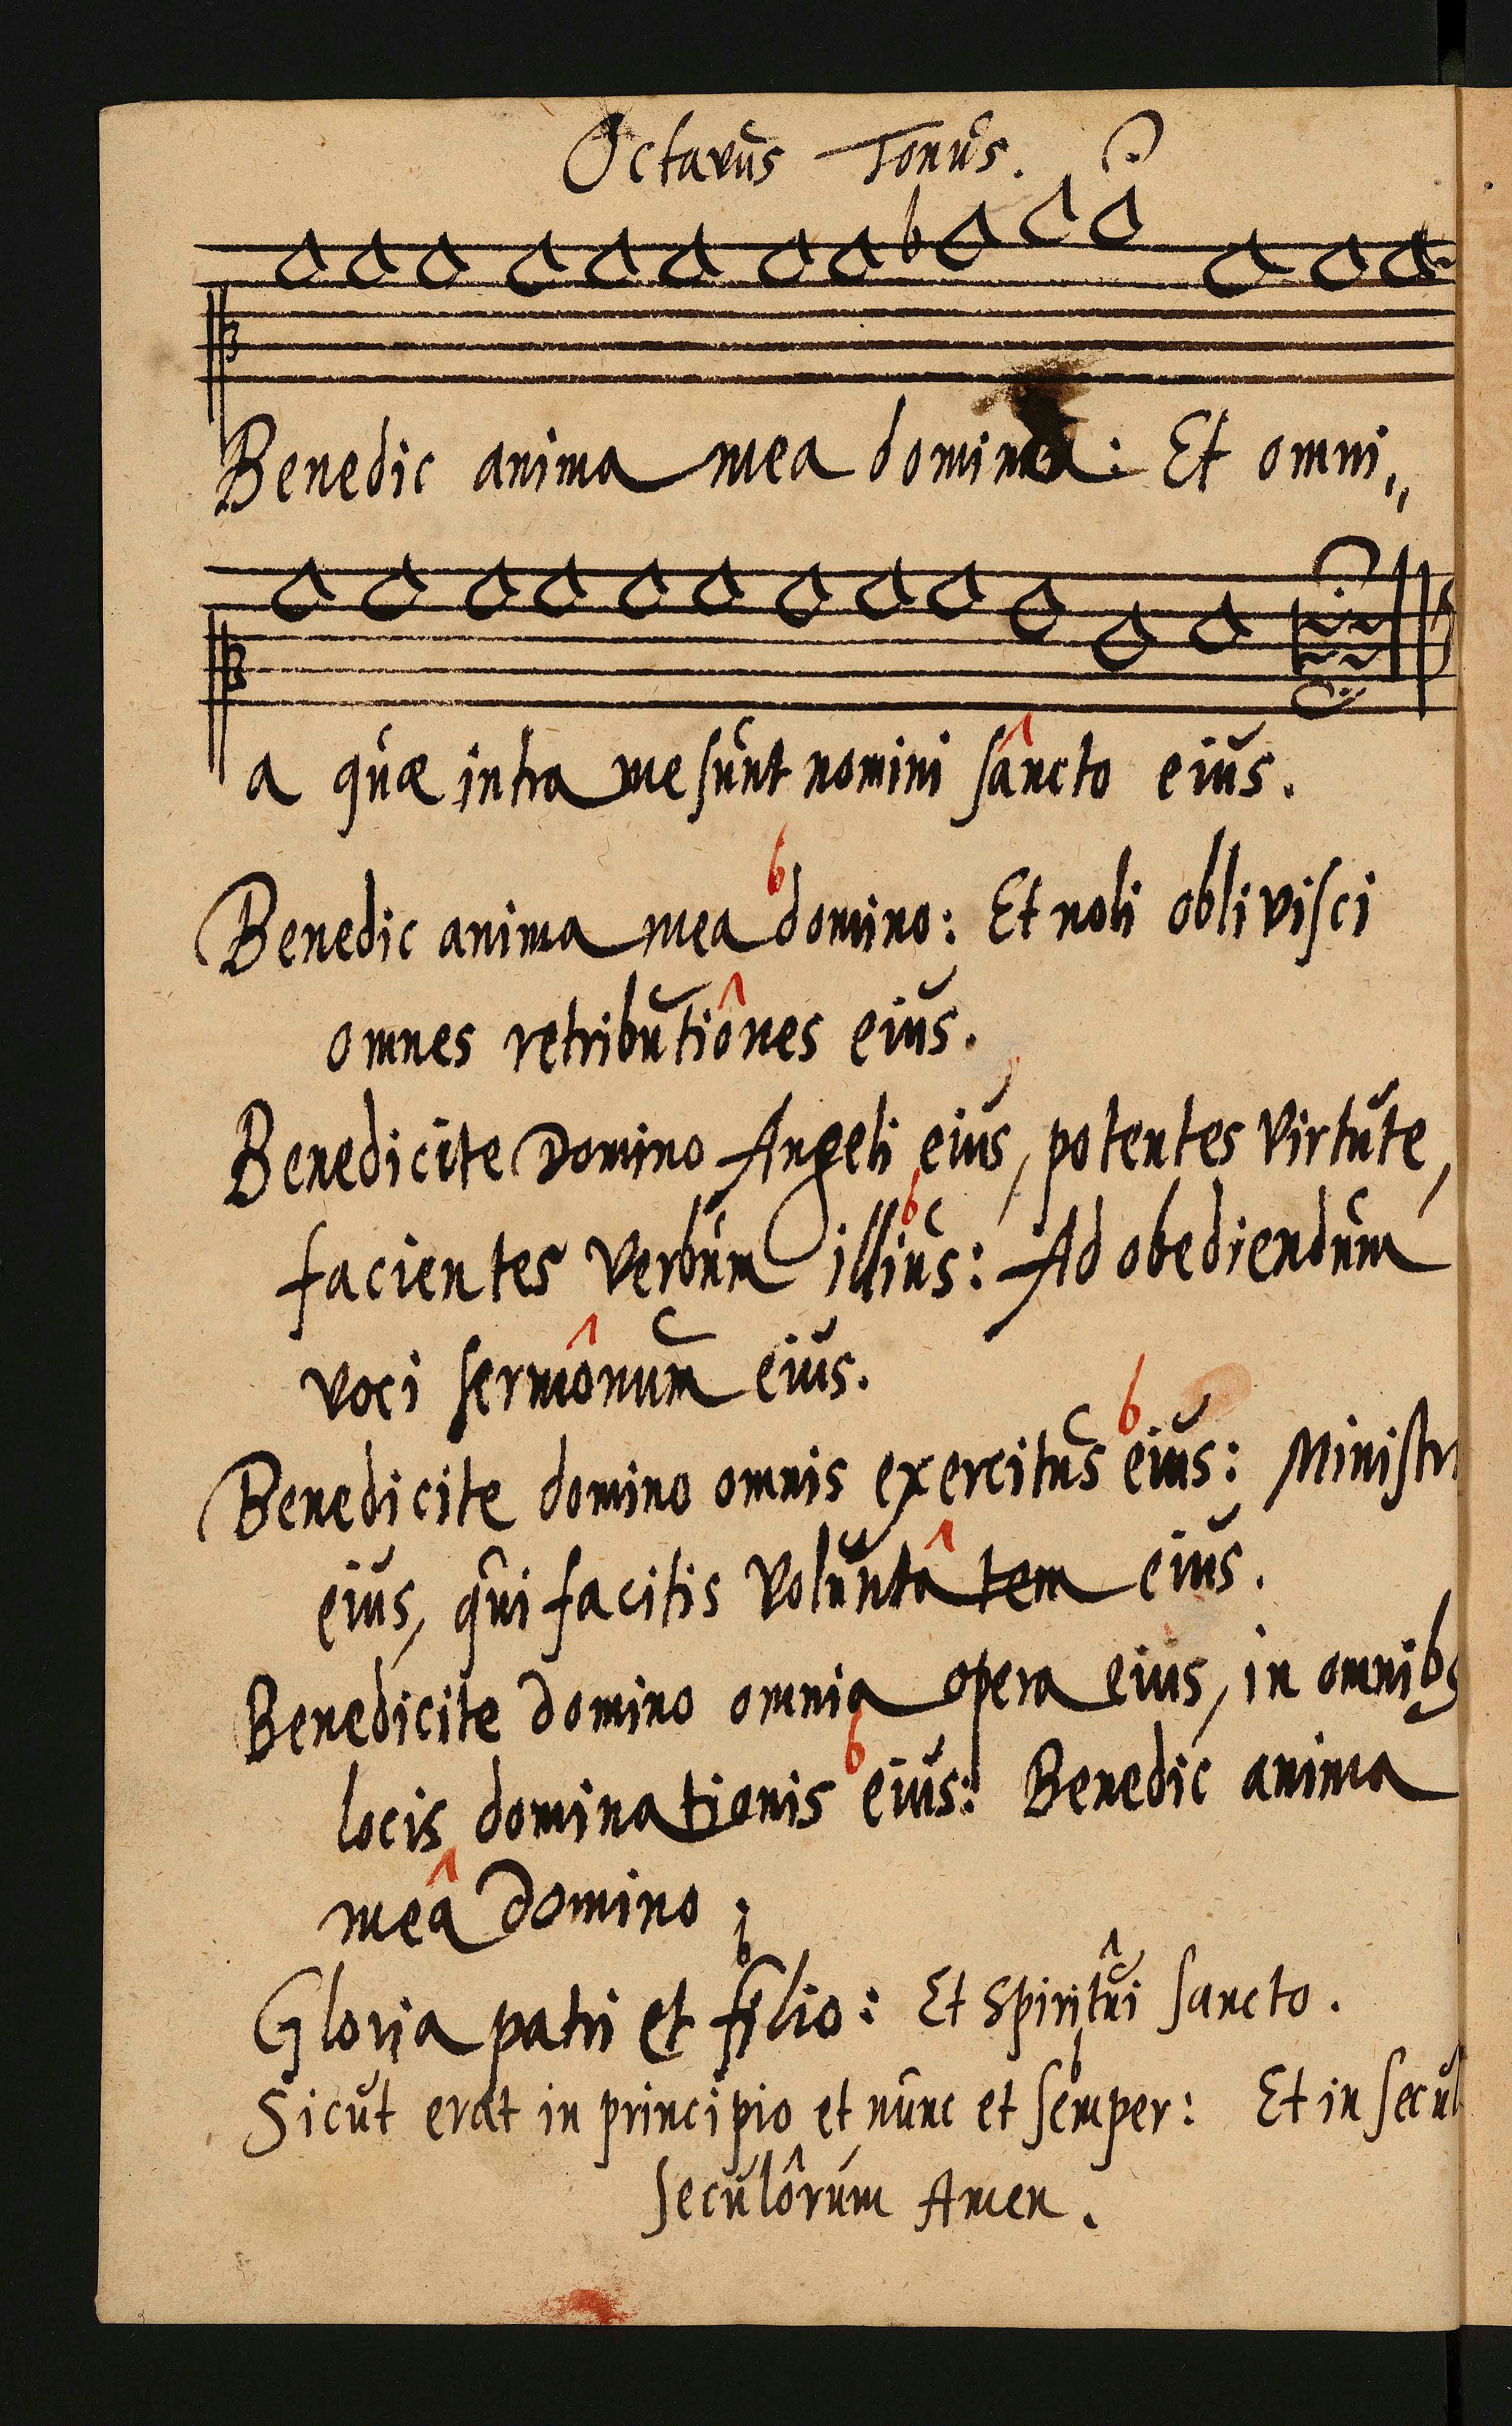 Octavus Tonus.
Benedic anima mea domino: Et omni„
a quæ intra me sunt nomini sâncto eius.
Benedic anima mea domino: Et noli oblivisci
omnes retributiônes eius.
Benedicite Domino Angeli eius, potentes virtute,
facientes verbum illius: Ad obediendum
voci sermônum eius.
Benedicite domino omnis exercitus eius: Ministri
eius, qui facitis voluntâtem eius.
Benedicite domino omnia opera eius, in omnibs
locis dominationis eius: Benedic anima
meâ domino.
Gloria patri et filio: Et Spiritûi sancto.
Sicut erat in principio et nunc et semper: Et in secul
seculôrum Amen.